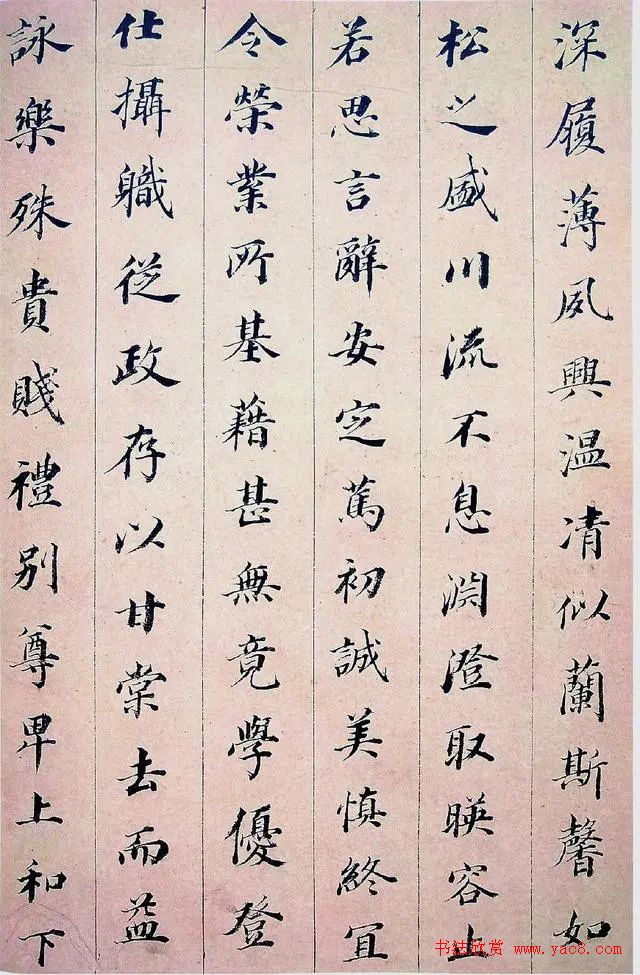 深履薄夙興温凊似蘭斯馨如
松之盛川流不息淵澄取暎容止
若思言辭安定篤初誠美慎終宜
令榮業所基藉甚無竟學優登
仕攝職從政存以甘棠去而益
詠樂殊貴賤禮別尊卑上和下
书法欣赏 www.yac8.com